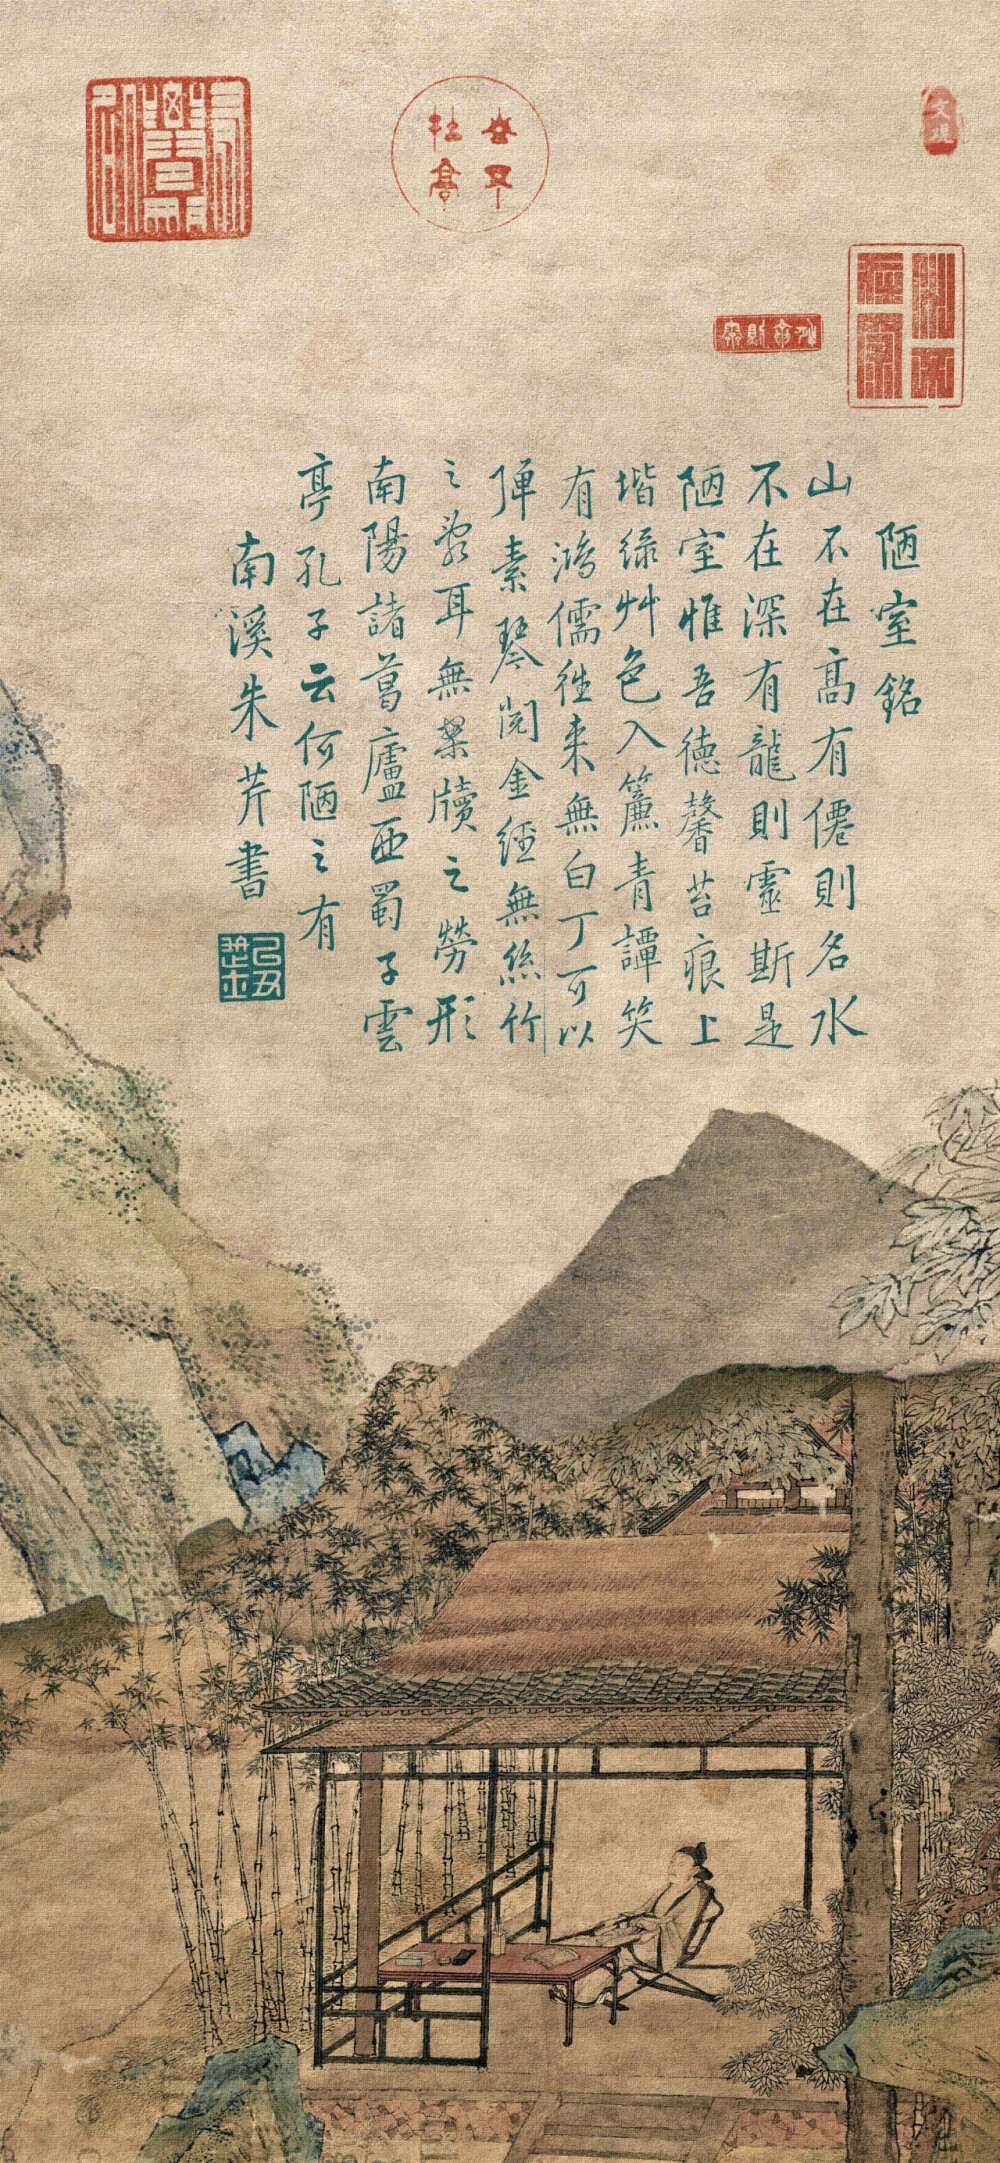 陋室銘
山不在高有僊則名水
不在深有龍則靈斯是
陋室惟吾德馨苔痕上
堦綠艸色入簾青譚笑
有鴻儒往来無白丁可以
弾素琴閱金經無絲竹
之亂耳無案牘之勞形
南陽諸葛廬西蜀子雲
亭孔子云何陋之有
南溪朱芹書